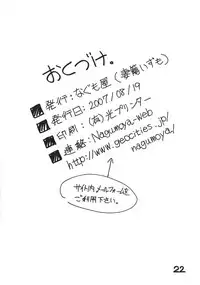 おくづけ。
発行：なぐも屋（春陽いずも）
発行日：2007/08/19
印刷：（有）光プリンター
連絡：Nagumoya-web
http://www.geocities.jp/
nagumoya/
サイト内メールフォームを
ご利用下さい。
22